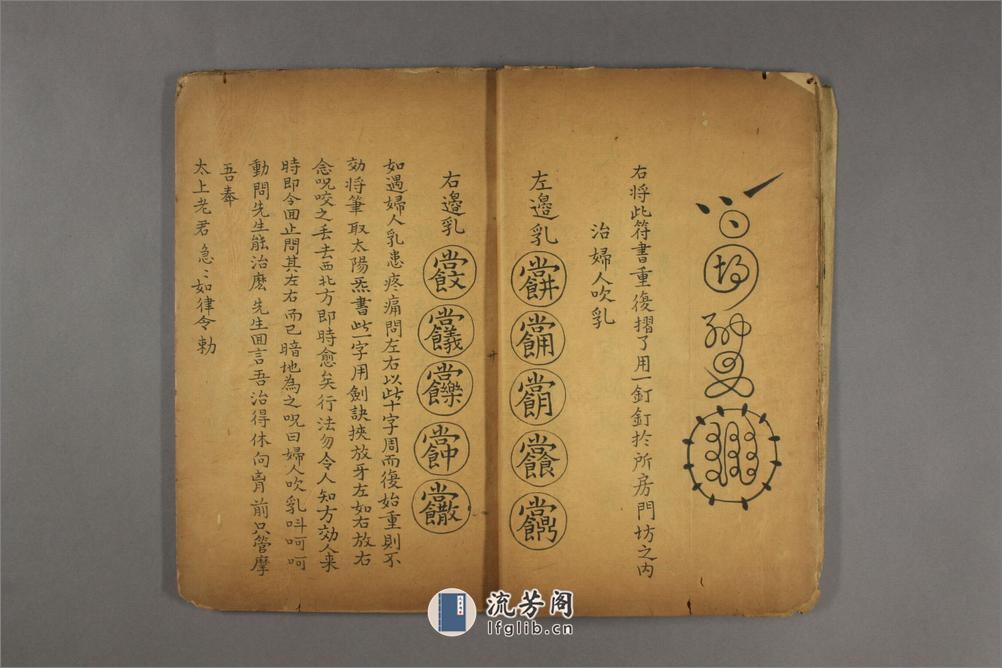 右将此符書重復摺了用一釘釘扵所房門坊之内
治婦人吹乳
左邊乳
右邊乳
如遇婦人乳患疼痛問左右以此十字周而復始重則不
効将筆取太陽炁書此一字用劍訣挾放牙左如右放右
念呪咬之丢去西北方即時愈矣行法勿令人知方効人来
時即令面止問其左右而已暗地為之呪曰婦人吹乳呌呵呵
動問先生能治麽先生面言吾治得休向胷前只管摩
吾奉
太上老君急〻如律令勅
流芳阁
lfglib.cn